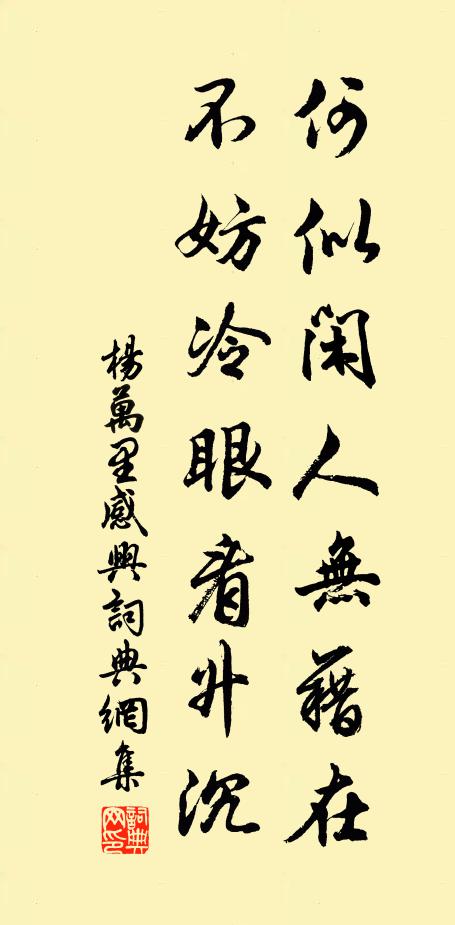 何似閑人無藉在
不妨冷眼看升沉
楊萬里感興詞典網集
詞典網印